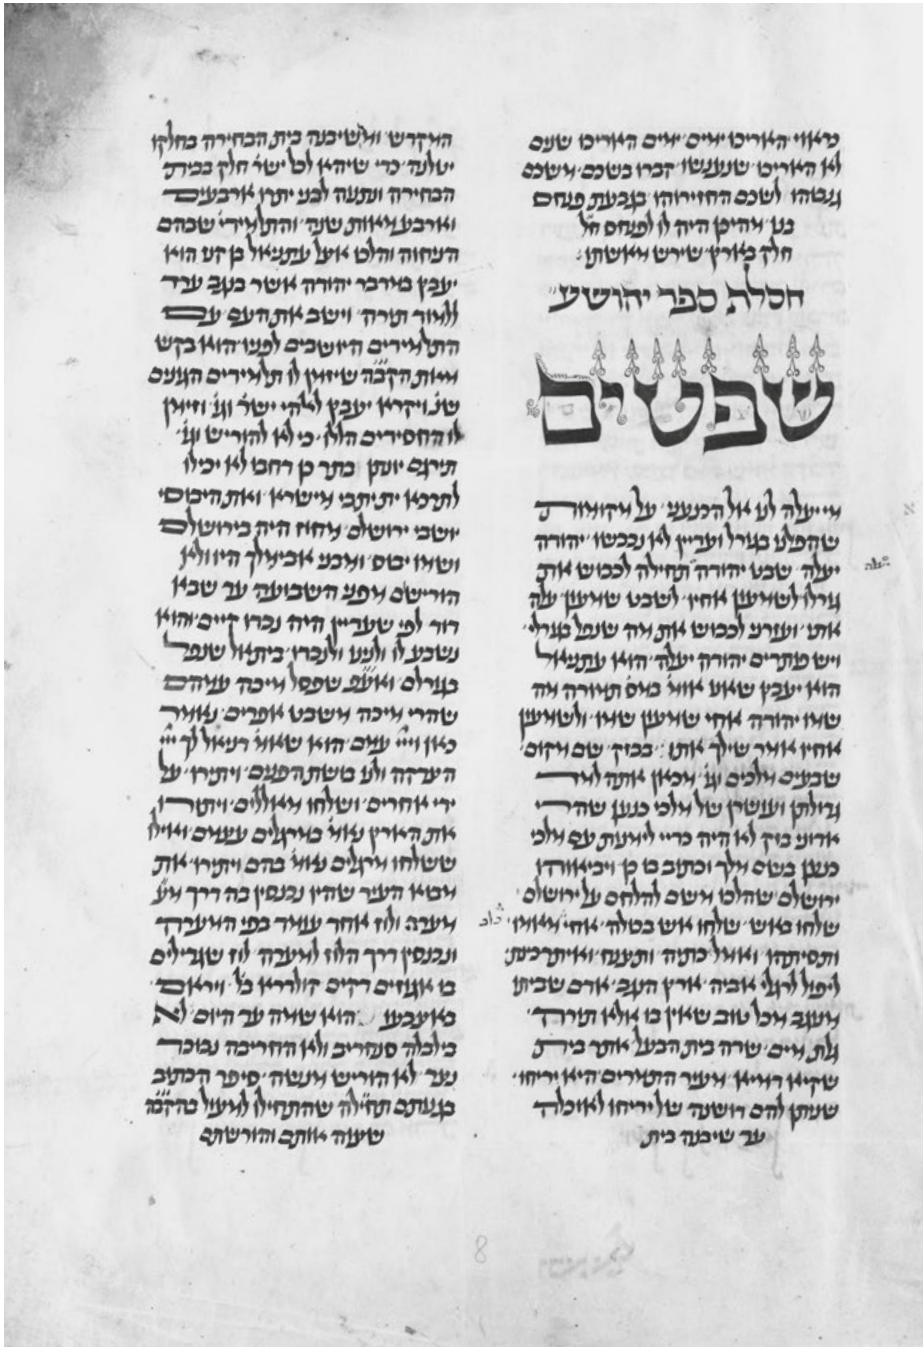 כראוי האריכו ימים ימים האריכו שנים
לא האריכו שנענשו קברו בשכם משכם
גנבוהו לשכם החזירוהו בגבעת פנחס
בנו מהיכן היה לו לפנחס חל
חלק בארץ שירש מאשתו
חסלת ספר יהושע
שפטים
מי יעלה לנו אל הכנעני על מקומות
שהפלנו בגורל ועדיין לא נכבשו יהודה
יעלה שבט יהודה תחילה לכבוש את
גורלו לשמעון אחיו לשבט שמעון עלה
אתי ועזרני לכבוש את מה שנפל בגורלי
ויש פותרים יהודה יעלה הוא עתניאל
הוא יעבץ
שמו יהודה אחי שמעון שמו ולשמעון
אחיו אומר שילך אתו בבזק שם מקום
שבעים מלכים וגו מכאן אתה למד
גדולתן ועושרן של מלכי כנען שהרי
אדוני בזק לא היה כדיי לימנות עם מלכי
כנען בשם מלך וכתוב בו כן ויביאוהו
ירושלם שהלכו משם להלחם על ירושלם
שלחו באש שלחו אש בטלה אחי
ותסיתהו
ליפול לרגלי אביה ארץ הנגב אדם שביתו
מנוגב מכל טוב שאין בו אלא תורה
גלת מים שדה בית הבעל
מעיר התמרים היא יריחו
שנתן להם דושנה של יריחו לאוכלה
עד שיבנה בית
המקדש ומי שיבנה בית הבחירה בחלקו
יטלנה כדי שיהא לכל ישר חלק בבית
הבחירה ונתנה לבני יתרו ארבעים
וארבע מאות שנה והתלמידי שבהם
הניחוה והלכו אצל עתניאל בן קנז הוא
יעבץ במדבר יהודה אשר בנגב ערד
ללמוד תורה וישב את העם עם
התלמידים היושבים לפניו הוא בקש
מאת הקבה שיזמין לו תלמידים הגונים
שנ ויקרא יעבץ לאלהי ישר וגו וזימן
לו החסידים הללו כי לא להוריש וגו
תירגם יונתן בתר כן רחבו לא יכילו
לתרכא ית יתבי מישרא ואת היבוסי
יושבי ירושלם מחוז היה בירושלם
ושמו יבוס ומבני אבימלך היו ולא
הורישם מפני השבועה עד שבא
דוד לפי שעדיין היה נכדו קיים והוא
נשבע לו ולנינו ולנכדו בית אל שנפל
בגורלם ואעפ שפסל מיכה עמהם
שהרי מיכה משבט אפרים נאמר
כאן וייי עמם הוא שאמ דניאל לך ייי
הצדקה ולנו בושת הפנים ויתירו על
ידי אחרים ושלחו מאללים ויתרו
את הארץ נאמ במרגלים עצמם ואילו
ששלחו מרגלים נאמ בהם ויתירו את
מבוא העיר שהיו נכנסין בה דרך מע
מערה ולוז אחד עומד בפי המערה
ונכנסין דרך הלוז למערה לוז שגדילים
בו אגוזים דקים קולדרא בל
הוא שמה עד היום לא
בילבלה סנחריב ולא החריבה נבוכד
נצר לא הוריש מנשה סיפר הכתוב
בגנותם תחילה שהתחילו למעול בהקבה
שצוה אותם והורשתם
8